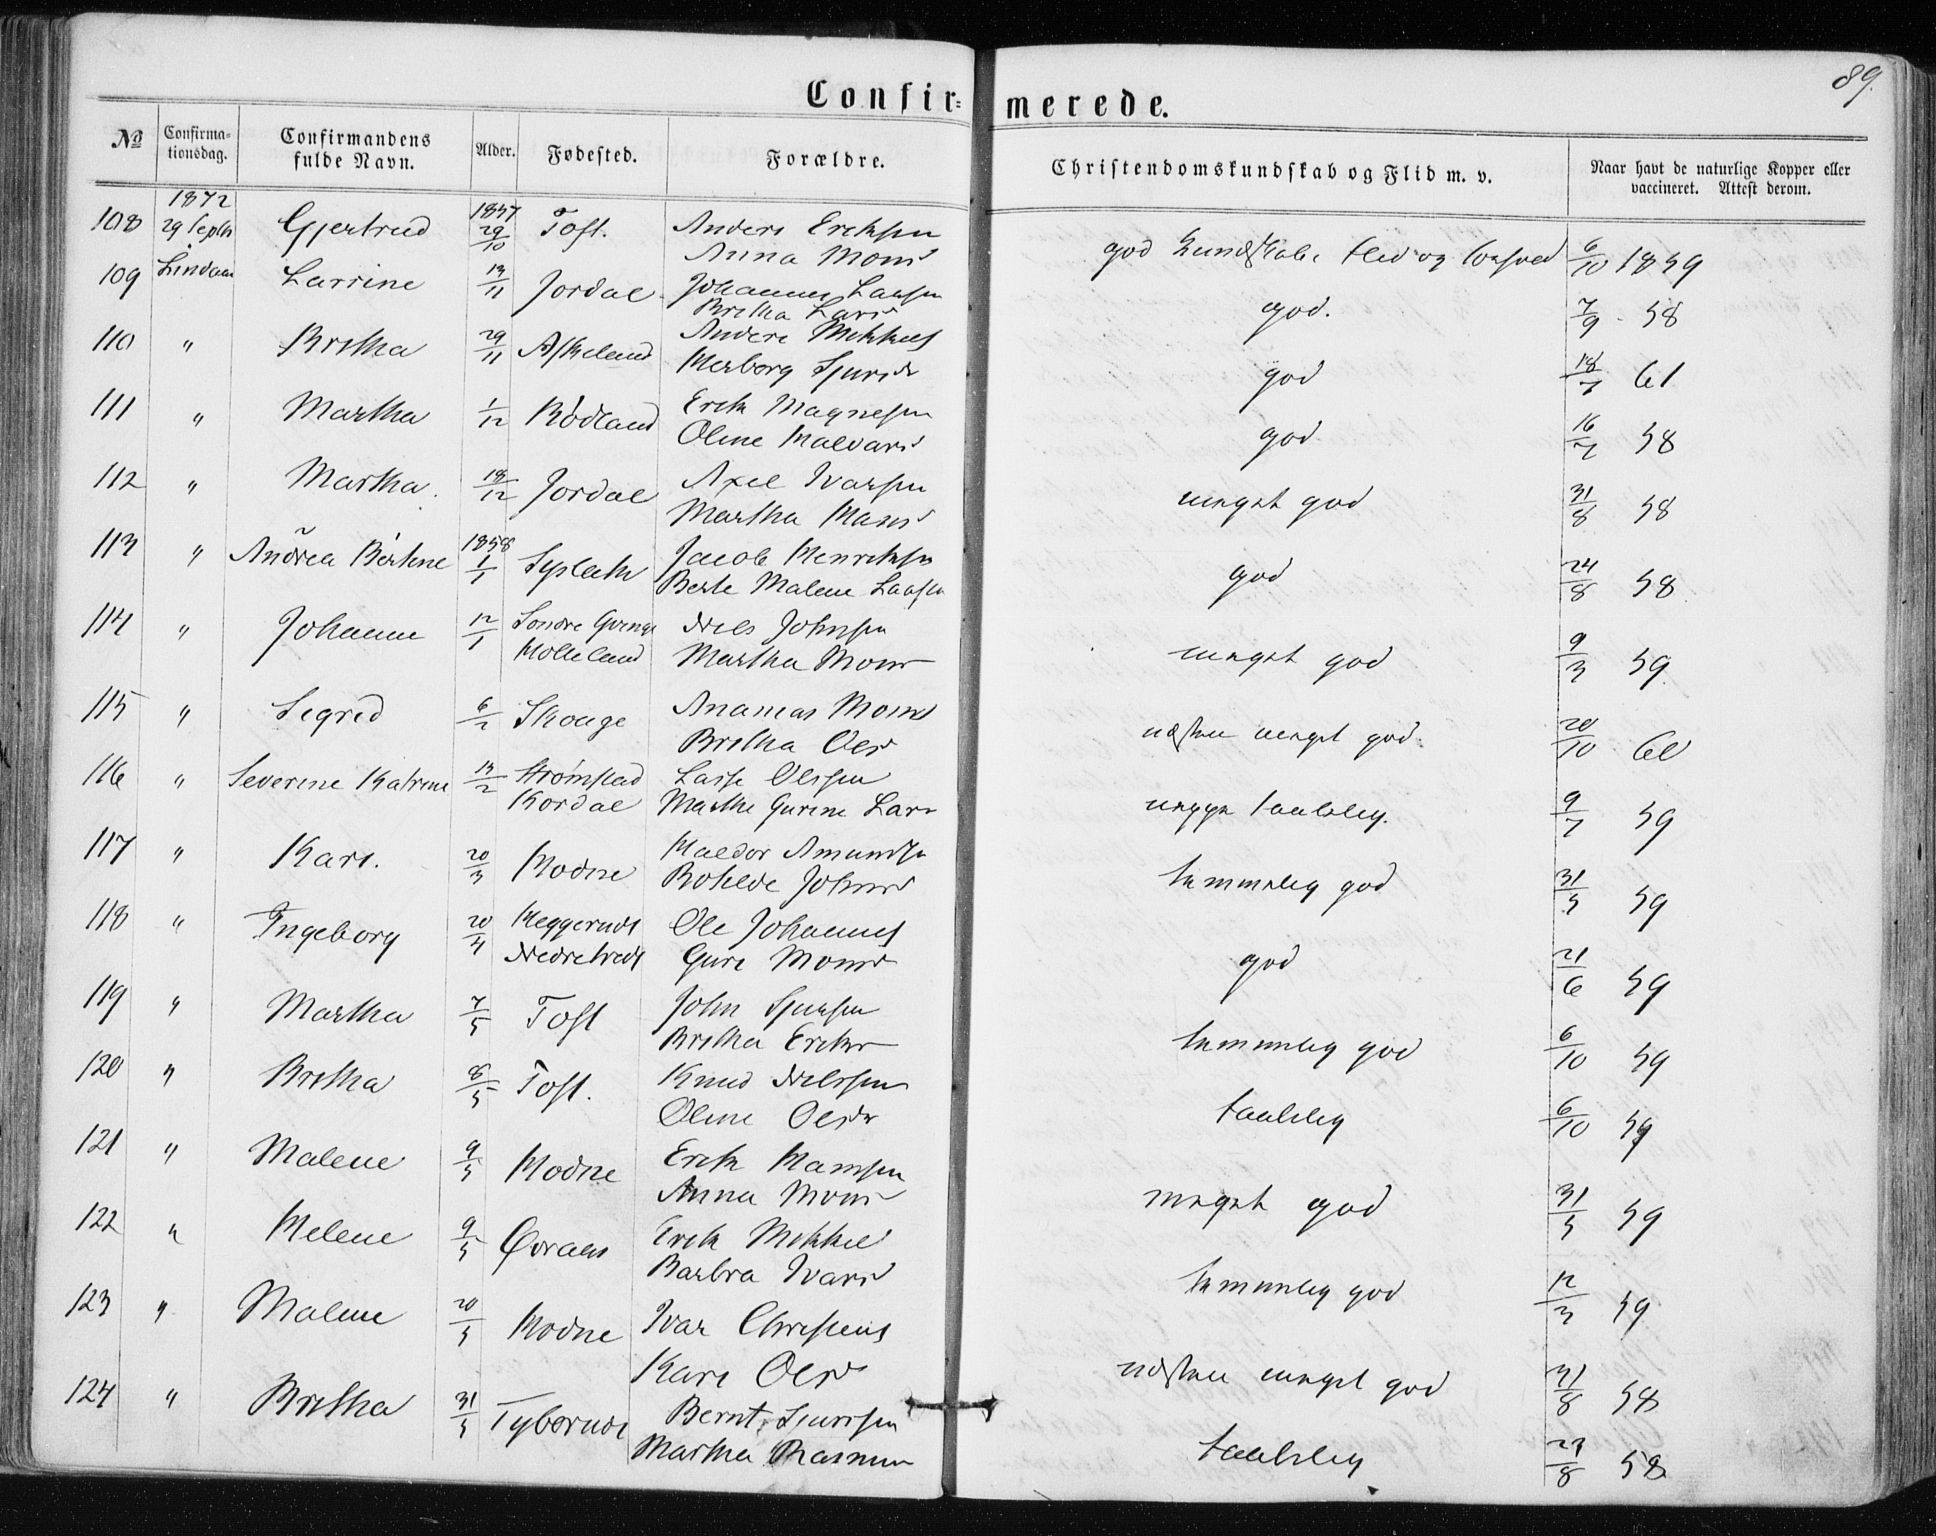 89.
Confir= merede.
№ Confirma-tionsdag. Confirmandens fulde Navn. Alder. Fødested. Forældre. Christendomskundskab og Flid m. v. Naar havt de naturlige Kopper eller vaccineret. Attest derom.
1872 1857
108 29 Septr Gjertrud 29/10 Toft. Anders Eriksen god Kundskab, Flid og 6/10 1859
Lindaas Anna Monsd
109 Larsine 13/11 Jordal Johannes Larsen god. 7/9 58
Britha Larsd
110 " Britha 29/11 Askeland Anders Mikkels god 18/7 61
Herborg Sjursdr
111 " Martha 1/12 Rødland Erik Magnesen god 16/7 58
Oline Halvard
112 " Martha. 18/12 Jordal Axel Ivarsen meget god 31/8 58
Martha Hansd
1858
113 " Andrea Bertine 1/1 Jacob Henriksen god 24/8 58
Berte Malene Larsen
114 " Johanne 12/1 Søndre Qvinge Nils Johnsen meget god 9/3 59
Molleland Martha Monsdr
115 " Sigrid 6/2 Skouge Ananias Monsd næsten meget god 20/10 60
Britha Olsd
116 " Severine Katrine 13/2 Strømstad Lasse Olssen taalelig. 9/7 59
Kordal Marthe Gurine Lars
117 " Kari. 20/3 Hodne Haldor Amundsen temmelig god 31/5 59
Bothilde Johnsd
118 " Ingeborg 20/4 Heggernæs Ole Johannes god 21/6 59
Nedretvedt Guri Monsd
119 " Martha 7/5 Toft John Sjursen temmelig god 6/10 59
Britha Eriksd
120 " Britha 8/5 Toft. Knud Nilssen taalelig 6/10 59
Oline Olsdr
121 " Malene 9/5 Hodne Erik Hansen meget god 31/5 59
Anna Monsd
122 " Helene 9/5 Qvraas Erik Mikkel temmelig god 12/3 59
Barbra Ivarsd
123 " Malene 20/5 Hodne Ivar Christens næsten meget god 31/8 58
Kari Olsd
124 " Britha 31/5 Tybernæs Bernt Sjurssen taalelig 23/8 58
Martha Rasmus